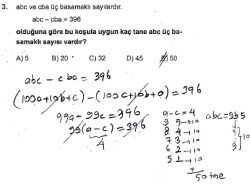 3. abc ve cba üç basamaklı sayılardır.
abc – cba = 396
olduğuna göre bu koşula uygun kaç tane abc üç ba-
samaklı sayısı vardır?
A) 5 B) 20 C) 32 D) 45 E) 50
abc - cba = 396
(100a+10b+c) - (100c+10b+a) = 396
99a - 99c = 396
99(a-c) = 396
4
a-c=4
9 5 → 10
8 4 → 10
7 3 → 10
6 2 → 10
5 1 → 10
50 tane